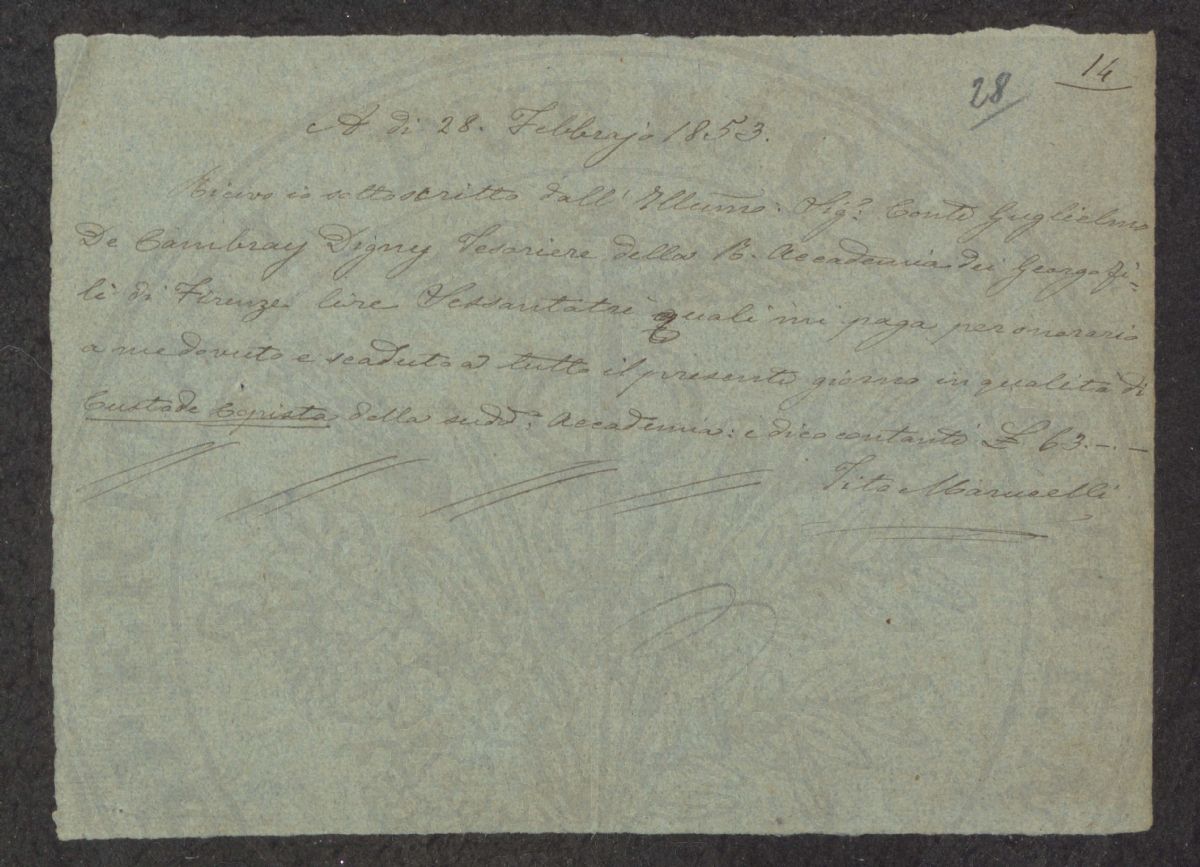 14
28
A di 28. Febbrajo 1853.
Ricevo io sottoscritto dall' Illumo. Sigr. Conte Guglielmo
De Cambray Digny Tesoriere della R. Accademia dei Georgofi=
li di Firenze lire Sessantatrè quali mi paga per onorario
a me dovuto e scaduto a tutto il presente giorno in qualità di
Custode Copista della sudda. Accademia: e dico contanti £ 63.-.-
Tito Marucelli